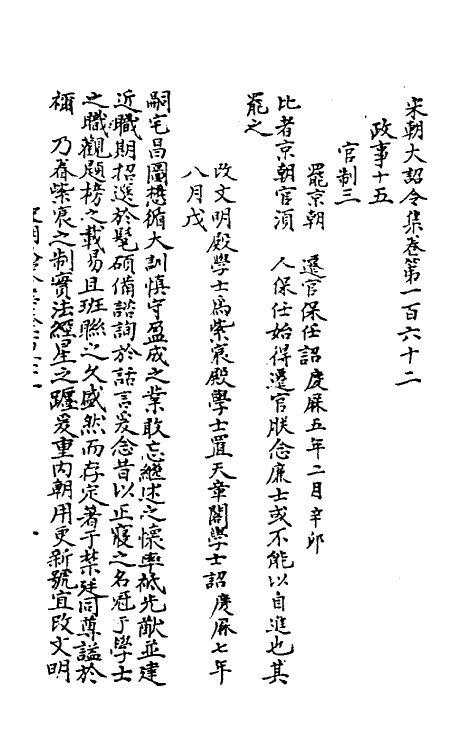 宋朝大詔令集卷第一百六十二
政事十五
官制三
罷京朝　遷官保任詔慶厤五年二月辛卯
比者京朝官湏　人保任始得遷官朕念廉士或不能以自進也其
罷之
改文明殿學士爲紫宸殿學士置天章閣學士詔慶厤七年
八月戊
嗣宅昌圖懋循大訓慎守盈成之業敢忘繼述之懷率祗先猷並建
近職期招選於髦碩備諮詢於話言爰念昔以正寢之名冠于學士
之職觀題榜之載易且班聯之久盛然而存定著于禁廷同尊謚於
禰　乃眷紫宸之制實法經星之躔爰重内朝用更新號宜改文明